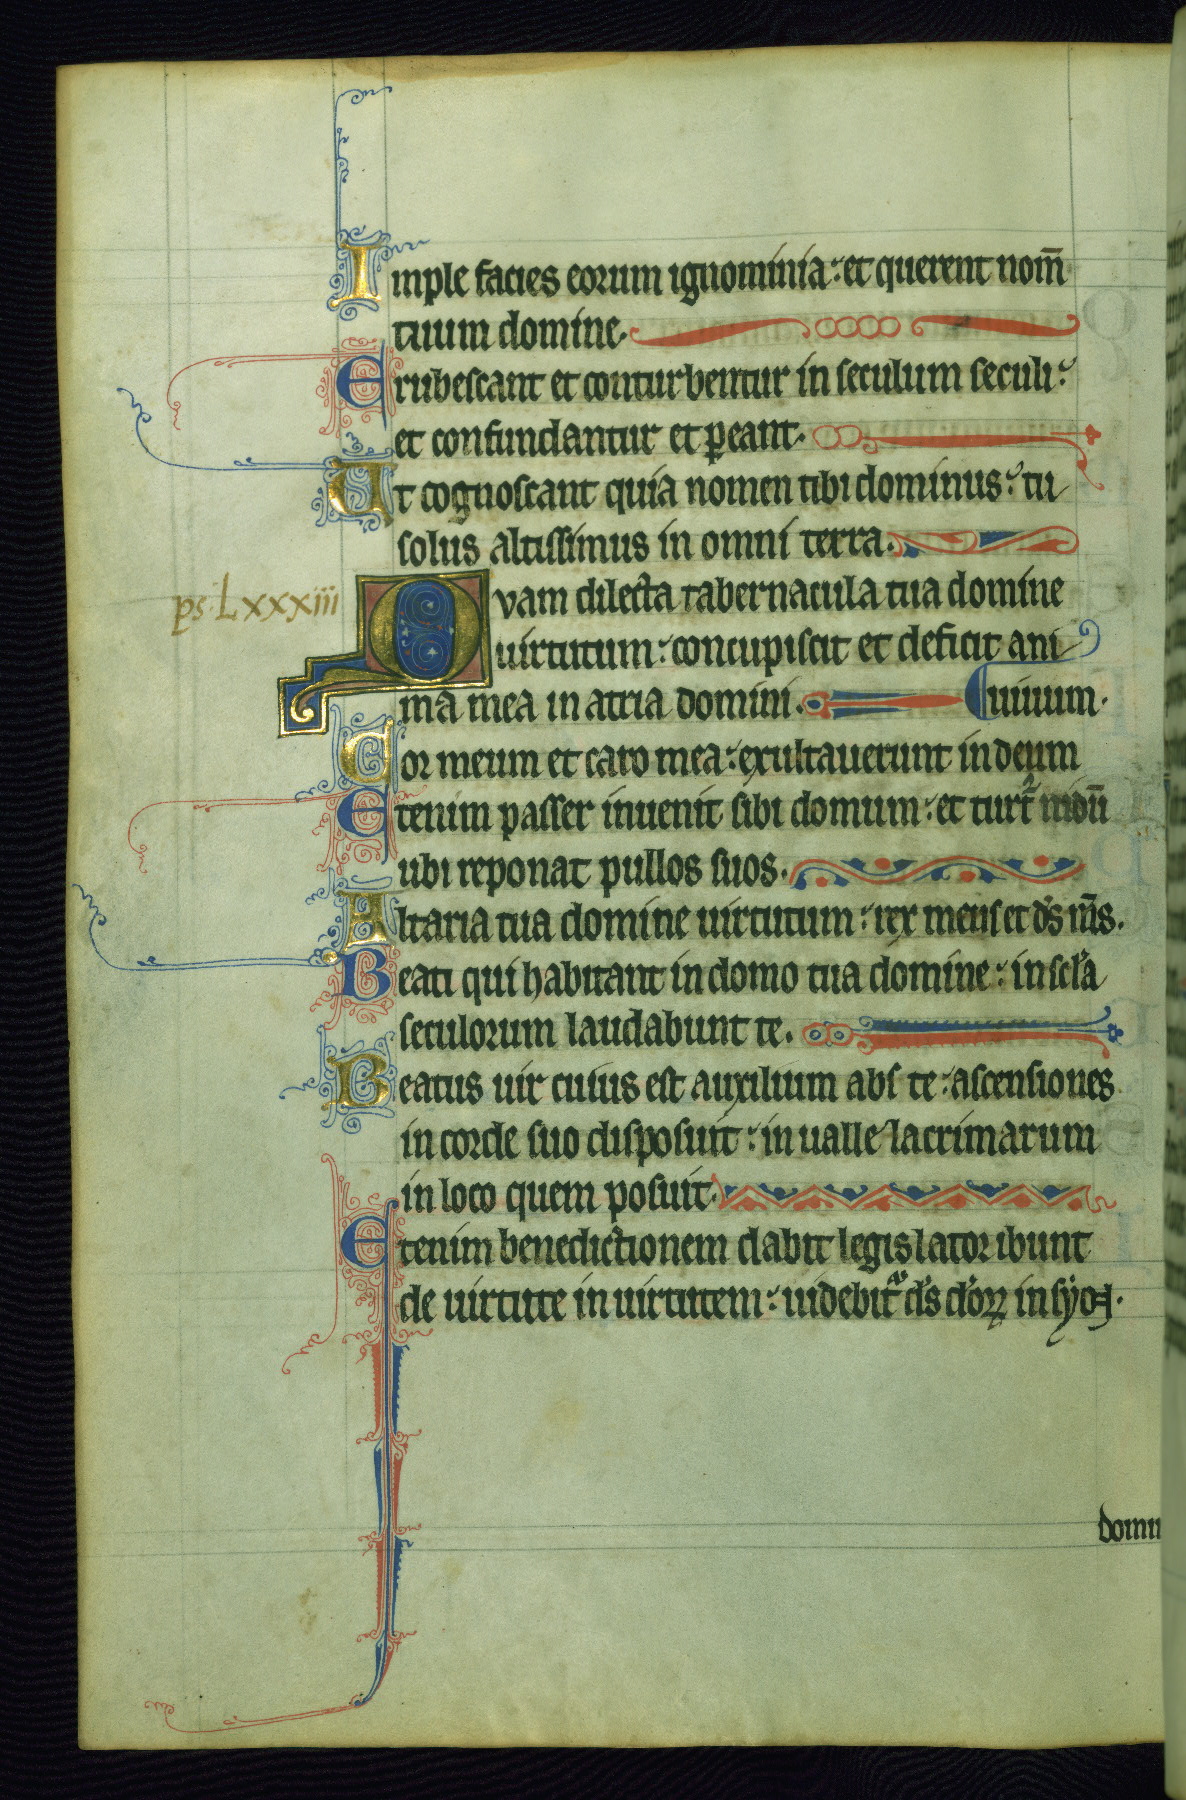 Imple facies eorum ignominia: et querent nom̄
tuum domine.
Erubescant et conturbentur in seculum seculi:
et confundantur et ꝑeant.
Et cognoscant quia nomen tibi dominus: tu
solus altissimus in omni terra.
ps. Lxxxiii
Quam dilecta tabernacula tua domine
uirtutum: concupiscit et deficit ani
ma mea in atria domini. uiuum.
Cor meum et caro mea: exultauerunt in deum
Etenim passer inuenit sibi domum: et turt̾ nidū
ubi reponat pullos suos.
Altaria tua domine uirtutum: rex meus et ds̄ ms̄.
Beati qui habitant in domo tua domine: in scl̄a
seculorum laudabunt te.
Beatus uir cuius est auxilium abs te: ascensiones
in corde suo disposuit: in ualle lacrimarum
in loco quem posuit.
Etenim benedictionem dabit legislator ibunt
de uirtute in uirtutem: uidebit̾ ds̄ deoꝝ in syon.
domi